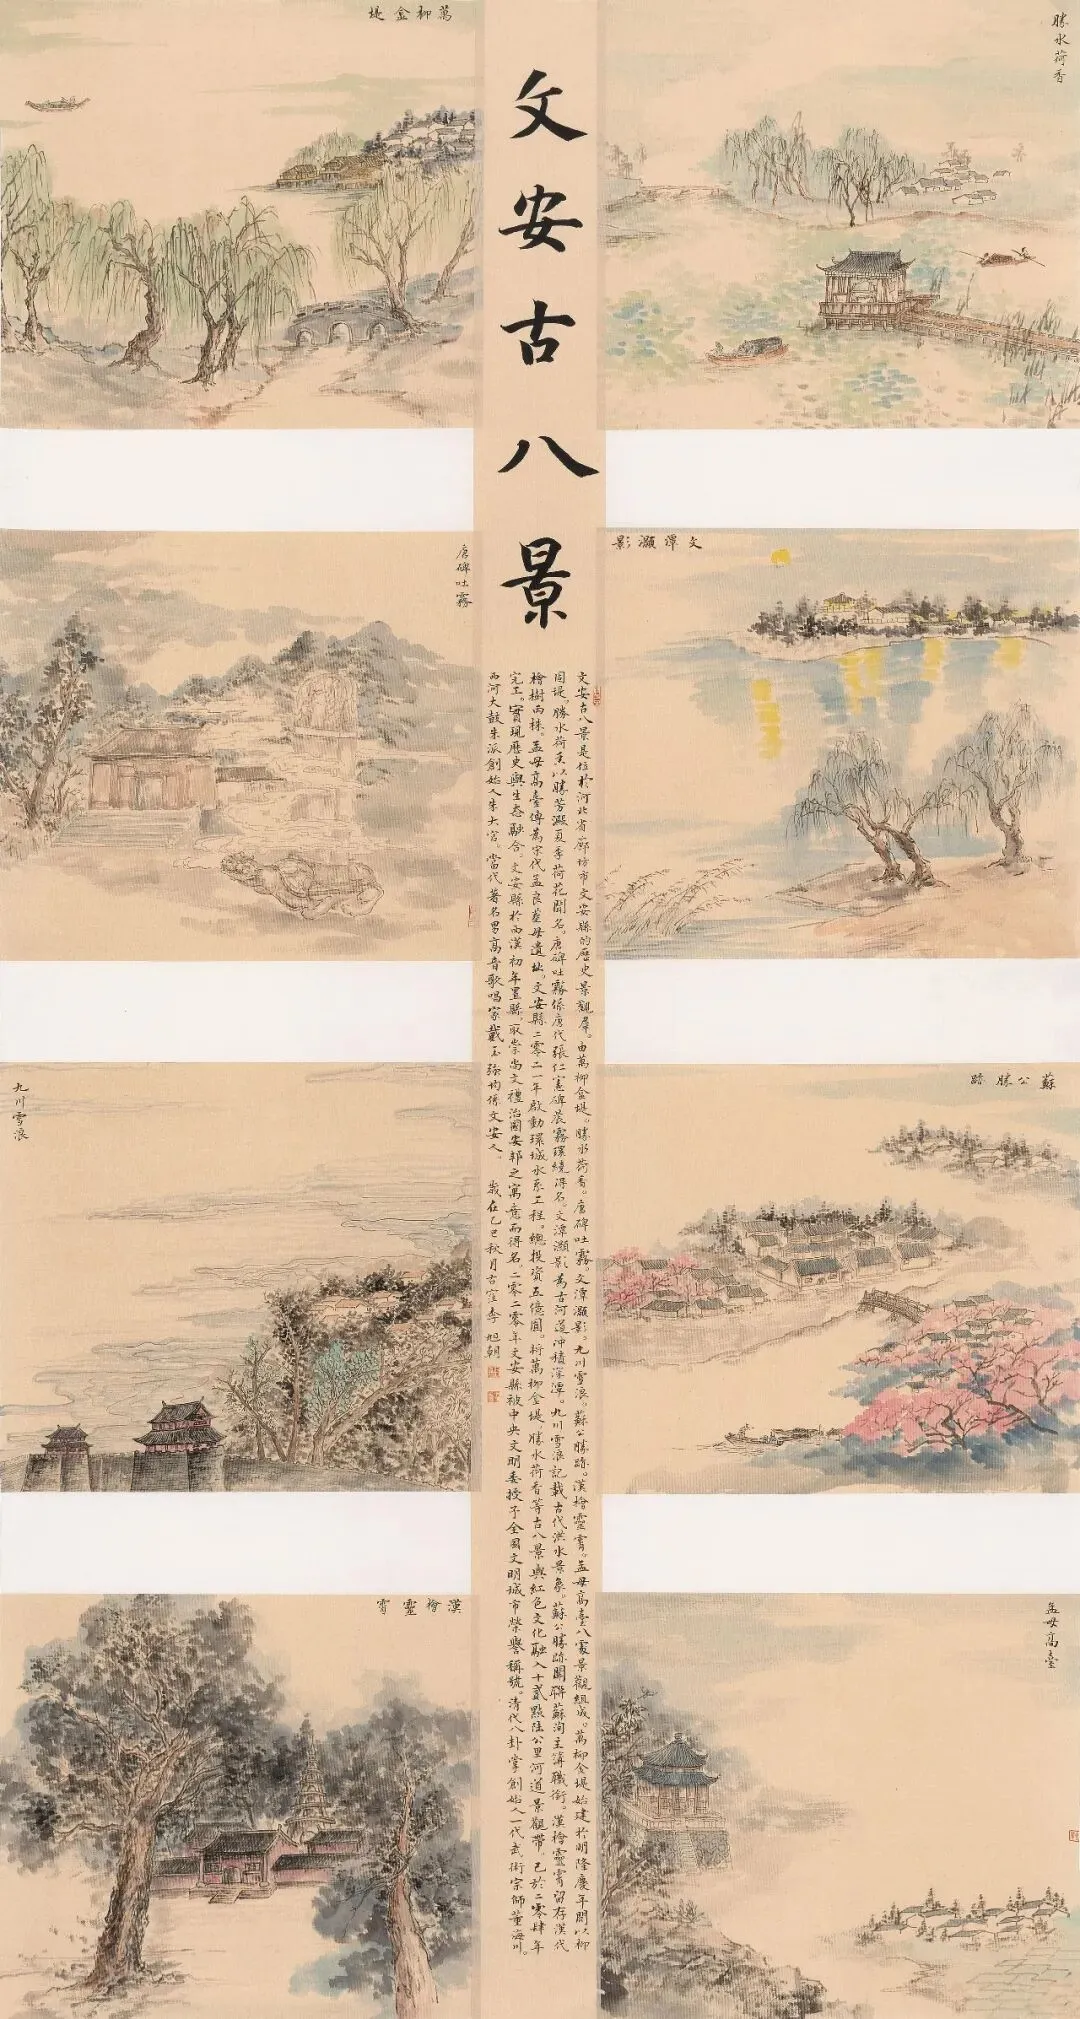 文安古八景
萬柳金堤
勝水荷香
唐碑吐霧
文潭灝影
九川雪浪
蘇公勝跡
漢檜靈霄
孟母高臺
文安古八景是位於河北省廊坊市文安縣的歷史景觀羣。由萬柳金堤。勝水荷香。唐碑吐霧。文潭灝影。九川雪浪。蘇公勝跡。漢檜靈霄。孟母高臺八處景觀組成。萬柳金堤始建於明隆慶年間以柳
固堤。勝水荷香以勝芳澱夏季荷花聞名。唐碑吐霧係唐代張仁憲碑晨霧環繞得名。文潭灝影為古河道沖積深潭。九川雪浪記載古代洪水景象。蘇公勝跡關聯蘇洵主簿職銜。漢檜靈霄留存漢代
檜樹兩株。孟母高臺傳為宋代孟良葬母遺址。文安縣二零二一年啟動環城水系工程。總投資五億圓。將萬柳金堤勝水荷香等古八景與紅色文化融入十貳點陸公里河道景觀帶。已於二零肆年
完工。實現歷史與生态融合。文安縣於西漢初年置縣。取崇尚文禮治國安邦之寓意而得名。二零二零年文安縣被中央文明委授予全國文明城市榮譽稱號。清代八卦掌創始人一代武術宗師董海川。
西河大鼓朱派創始人朱大官。當代著名男高音歌唱家戴玉强均係文安人。 歲在乙巳秋月古窪李旭朝